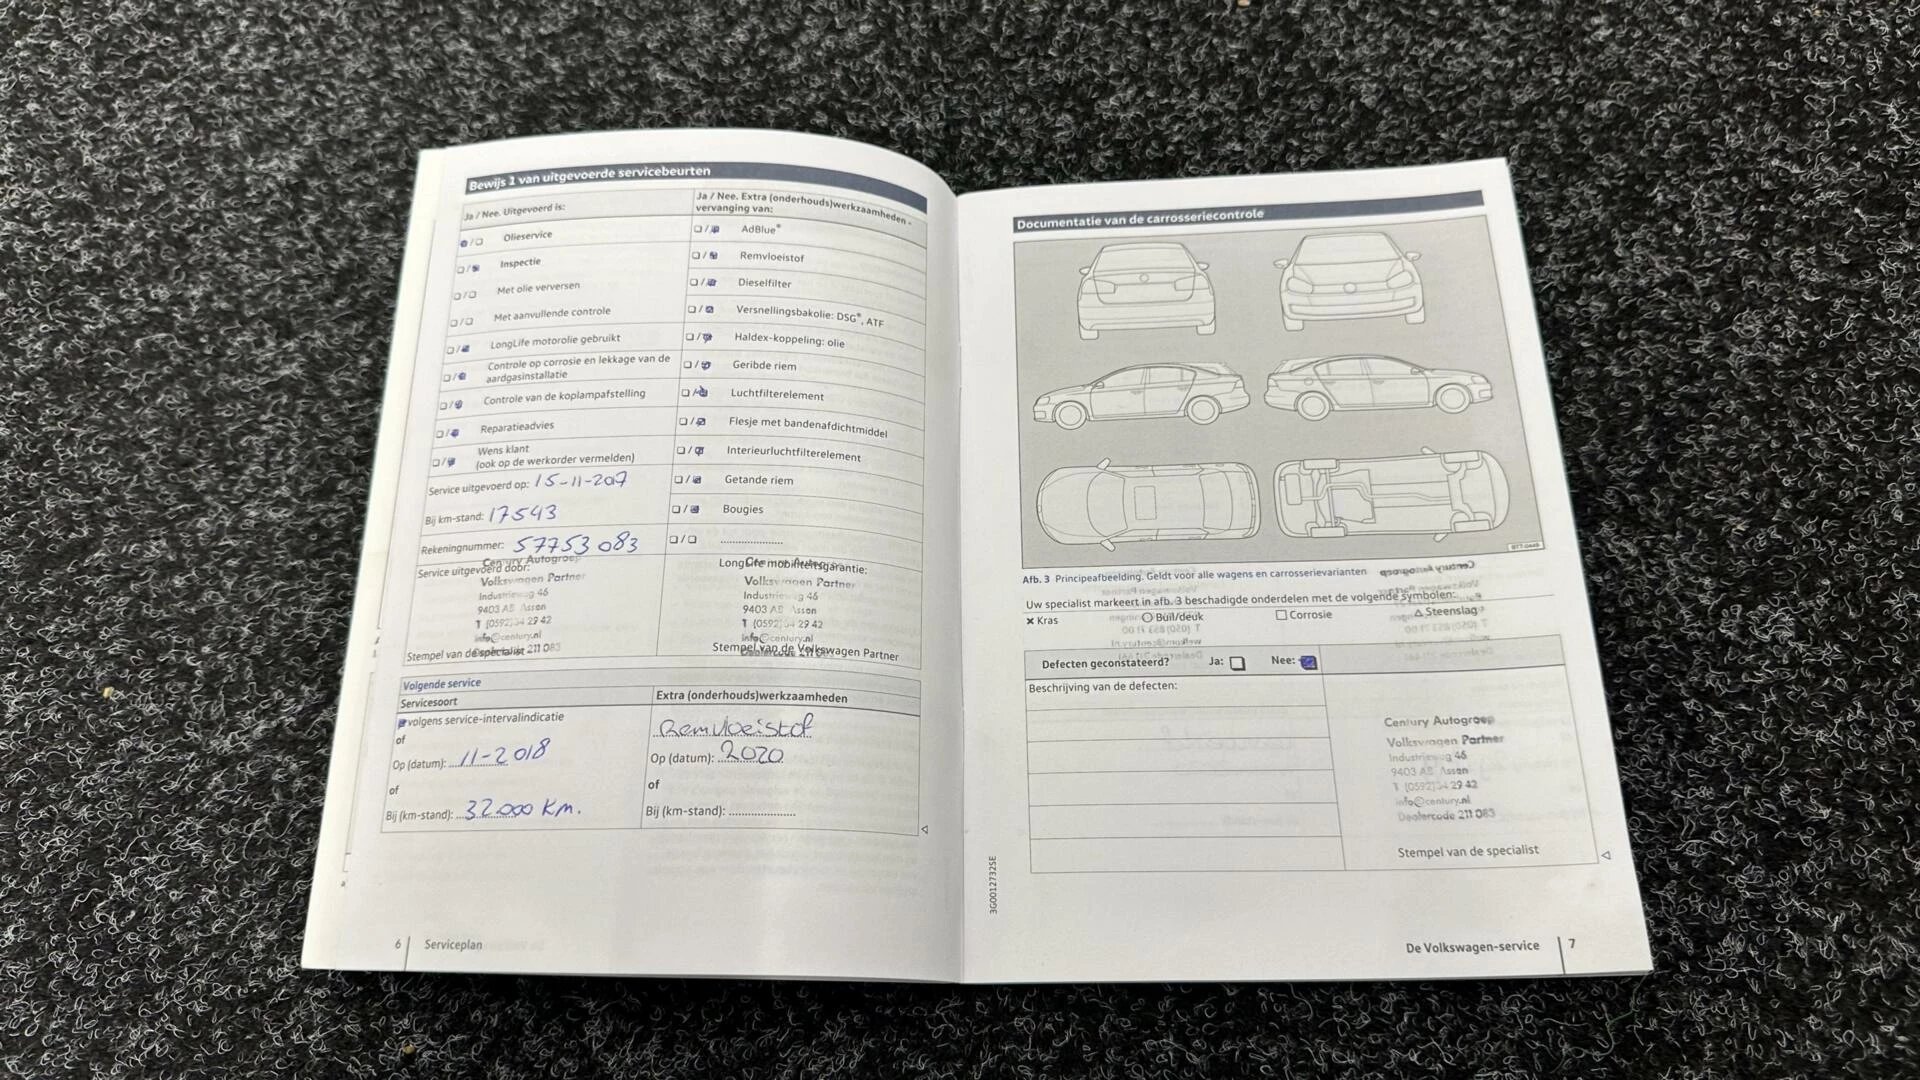 Bewijs 1 van uitgevoerde servicebeurten
Ja / Nee. Uitgevoerd is:
Olieservice
Inspectie
Met olie verversen
Met aanvullende controle
LongLife motorolie gebruikt
Controle op corrosie en lekkage van de
aardgasinstallatie
Controle van de koplampafstelling
Reparatieadvies
Wens klant
(ook op de werkorder vermelden)
Service uitgevoerd op: 15-11-2017
Bij km-stand: 17543
Rekeningnummer: 57753083
Service uitgevoerd door:
Century Autogroep
Volkswagen Partner
Industrieweg 46
9403 AB Assen
T (0592) 34 29 42
info@century.nl
Dealercode 211 083
Stempel van de specialist
Ja / Nee. Extra (onderhouds)werkzaamheden -
vervanging van:
AdBlue®
Remvloeistof
Dieselfilter
Versnellingsbakolie: DSG®, ATF
Haldex-koppeling: olie
Geribde riem
Luchtfilterelement
Flesje met bandenafdichtmiddel
Interieurluchtfilterelement
Getande riem
Bougies
LongLife mobiliteitsgarantie:
Century Autogroep
Volkswagen Partner
Industrieweg 46
9403 AB Assen
T (0592) 34 29 42
info@century.nl
Dealercode 211 083
Stempel van de Volkswagen Partner
Volgende service
Servicesoort
volgens service-intervalindicatie
of
Op (datum): 11-2018
of
Bij (km-stand): 32.000 Km.
Extra (onderhouds)werkzaamheden
Remvloeistof
Op (datum): 2020
of
Bij (km-stand):
6 Serviceplan
Documentatie van de carrosseriecontrole
BTT-0449
Afb. 3 Principeafbeelding. Geldt voor alle wagens en carrosserievarianten
Uw specialist markeert in afb. 3 beschadigde onderdelen met de volgende symbolen:
× Kras
○ Buil/deuk
□ Corrosie
△ Steenslag
Defecten geconstateerd? Ja: Nee:
Beschrijving van de defecten:
Century Autogroep
Volkswagen Partner
Industrieweg 46
9403 AB Assen
T (0592) 34 29 42
info@century.nl
Dealercode 211 083
Stempel van de specialist
3G0012732SE
De Volkswagen-service 7